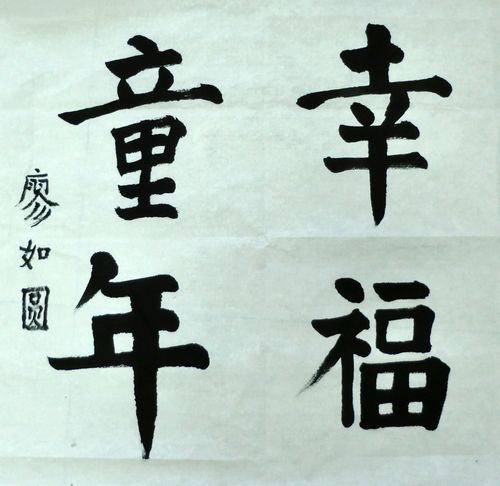 幸福
童年
廖如圆